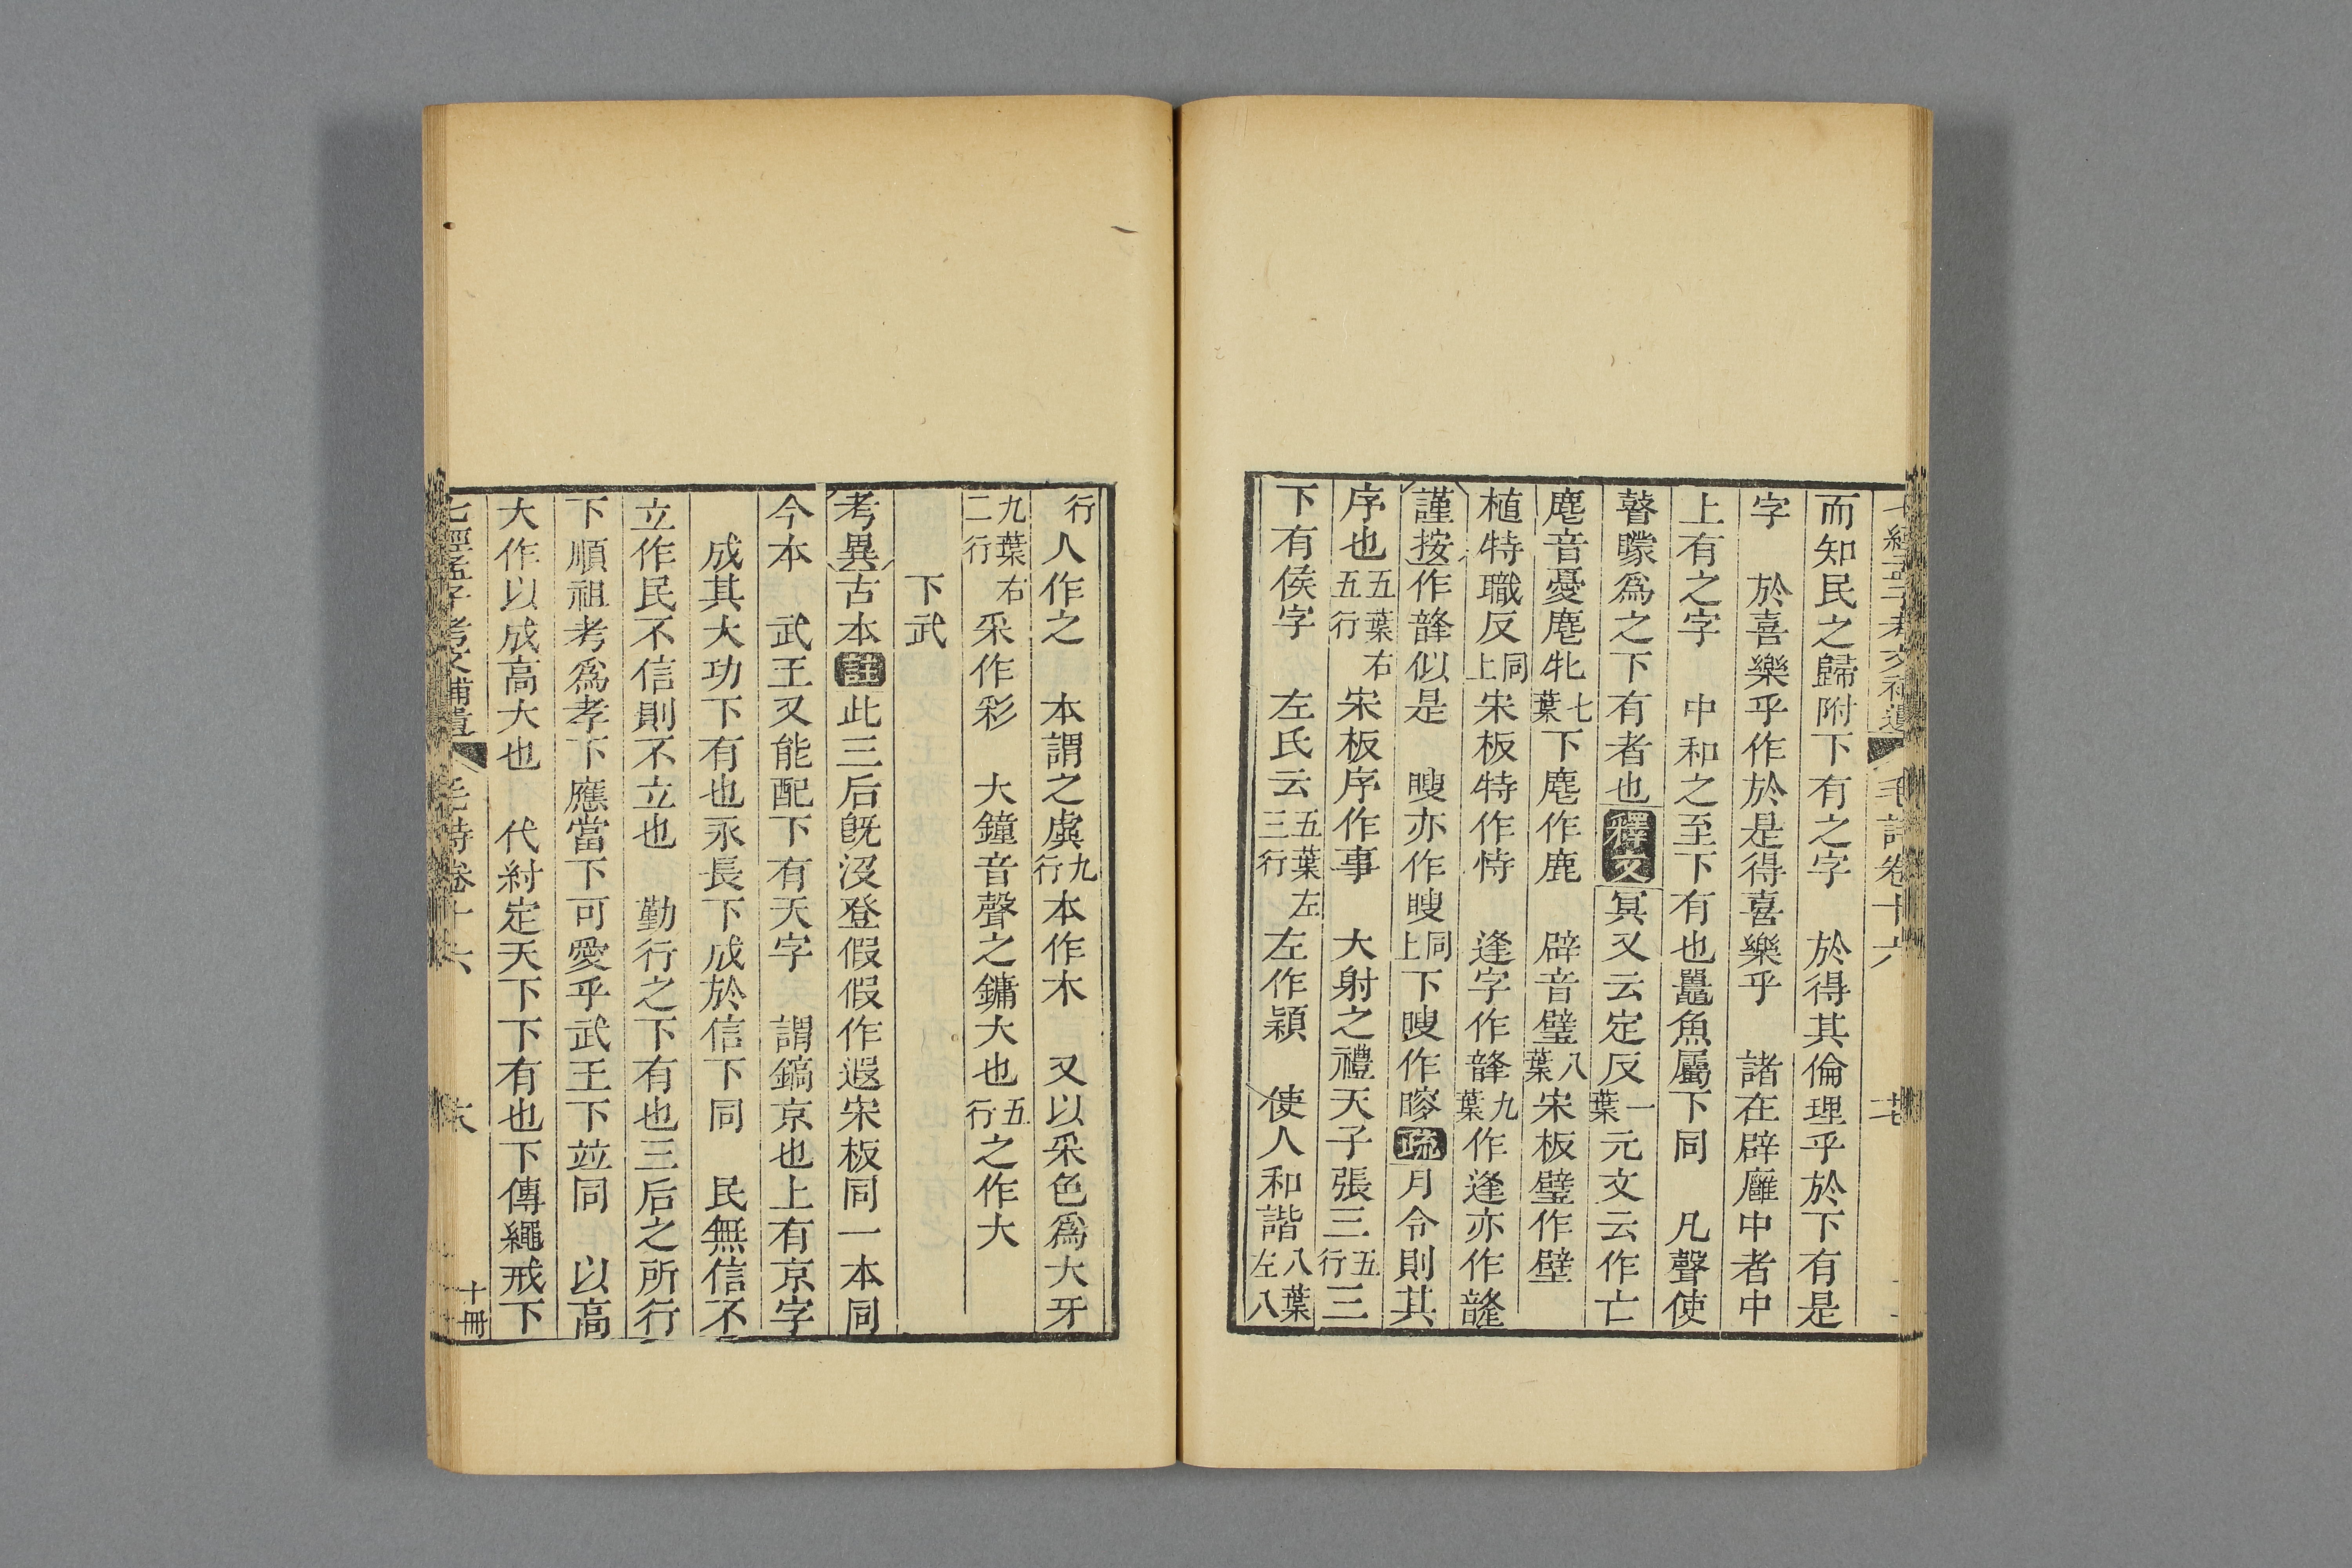 而知民之歸附下有之字　於得其倫理乎於下有是
字　於喜樂乎作於是得喜樂乎　諸在辟廱中者中
上有之字　中和之至下有也鼉魚屬下同　凡聲使
瞽矇爲之下有者也釋文冥又云定反一葉元文云作亡
麀音憂麀牝七葉下麀作鹿　辟音璧八葉宋板璧作壁
植特職反同上宋板特作恃　逢字作韸九葉作逢亦作韼
謹按作韸似是　瞍亦作瞍同上下瞍作䁓疏月令則其
序也五葉右五行宋板序作事　大射之禮天子張三五行三
下有侯字　左氏云五葉左三行左作穎　使人和諧八葉左八
行人作之　本謂之虡九行本作木　又以采色爲大牙
九葉右二行采作彩　大鐘音聲之鏞大也五行之作大
下武
考異古本註此三后旣沒登假假作遐宋板同一本同
今本　武王又能配下有天字　謂鎬京也上有京字
成其大功下有也永長下成於信下同　民無信不
立作民不信則不立也　勤行之下有也三后之所行
下順祖考爲孝下應當下可愛乎武王下竝同　以高
大作以成高大也　代紂定天下下有也下傳繩戒下
七經孟子考文補遺　毛詩卷十六　十冊